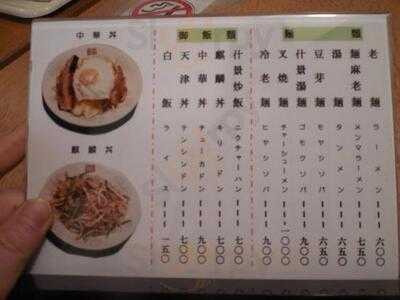 麺類
老麺 ラーメン 六〇〇
麺麻老麺 メンマラーメン 七五〇
湯麺 タンメン 六五〇
豆芽麺 モヤシソバ 六五〇
什景湯麺 ゴモクソバ 九〇〇
叉焼麺 チャーシューメン 一〇〇〇
冷老麺 ヒヤシソバ 九〇〇
御飯類
什景炒飯 ニクチャーハン 七〇〇
麒麟丼 キリンドン 七〇〇
中華丼 チューカドン 九〇〇
天津丼 テンシンドン 七〇〇
白飯 ライス 一五〇
中華丼
麒麟丼